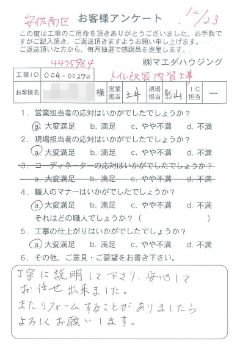 安佐南区 お客様アンケート 12/23
この度は工事のご用命を頂きありがとうございました。お手数で
すがご記入頂き、ご返送頂きますようお願い申し上げます。
ご返送頂いた方から、毎月抽選で感謝品を進呈します。
4475964 ㈱マエダハウジング
工事ID 004-01270 トイレ改装内装工事
お客様名 様 営業担当 現場担当 影山 IC担当 ー
1. 営業担当者の応対はいかがでしたでしょうか?
ⓐ大変満足 b. 満足 c. やや不満 d. 不満
2. 現場担当者の応対はいかがでしたでしょうか?
ⓐ大変満足 b. 満足 c. やや不満 d. 不満
3. コーディネーターの応対はいかがでしたでしょうか?
a. 大変満足 b. 満足 c. やや不満 d. 不満
4. 職人のマナーはいかがでしたでしょうか?
ⓐ大変満足 b. 満足 c. やや不満 d. 不満
それはどの職人でしょうか?( )
5. 工事の仕上がりはいかがでしたでしょうか?
ⓐ大変満足 b. 満足 c. やや不満 d. 不満
6. その他、ご意見・ご要望をお書き下さい。
丁寧に説明して下さり、安心して
お任せ出来ました。
またリフォームすることがありましたら
よろしくお願いします。